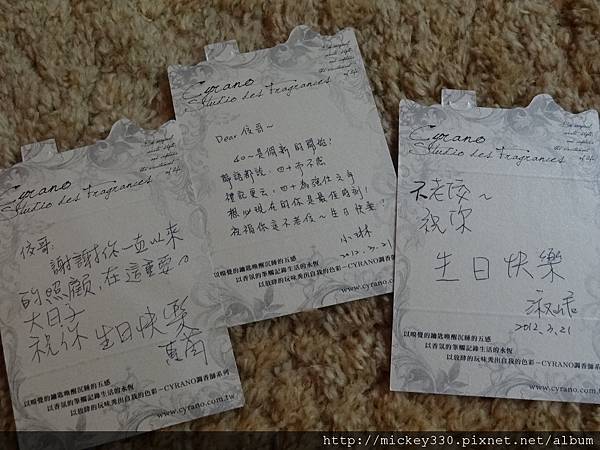 Cyrano
Studio des Fragrances
俊哥:
謝謝你一直以來
的照顧,在這重要的
大日子
祝你 生日快樂
以嗅覺的鑰匙喚醒沉睡的五感
以香氛的筆觸記錄生活的永恆
以放肆的玩味秀出自我的色彩－CYRANO調香師系列
www.cyrano.com.tw
Cyrano
Studio des Fragrances
of life.
Dear 俊哥~
40~是個新的開始!
論語都說,四十而不惑
禮記更云,四十為強仕之年
想必現在的你是最佳時刻!
祝福你這不老俊~生日快樂!
小琳
2012.3.21
以嗅覺的鑰匙喚醒沉睡的五感
以香氛的筆觸記錄生活的永恆
以放肆的玩味秀出自我的色彩－CYRANO調香師系列
Cyrano
Studio des Fragrances
of life.
不老俊~
祝你
生日快樂
2012.3.21
以嗅覺的鑰匙喚醒沉睡的五感
以香氛的筆觸記錄生活的永恆
以放肆的玩味秀出自我的色彩－CYRANO調香師系列
www.cyrano.com.tw
http://mickey330.pixnet.net/album